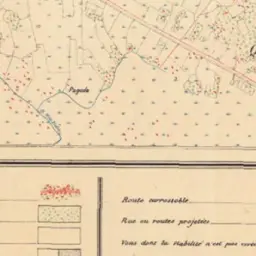 Pagode
Route carrossable
Rue ou routes projetées
Voies dont la viabilité n'est pas